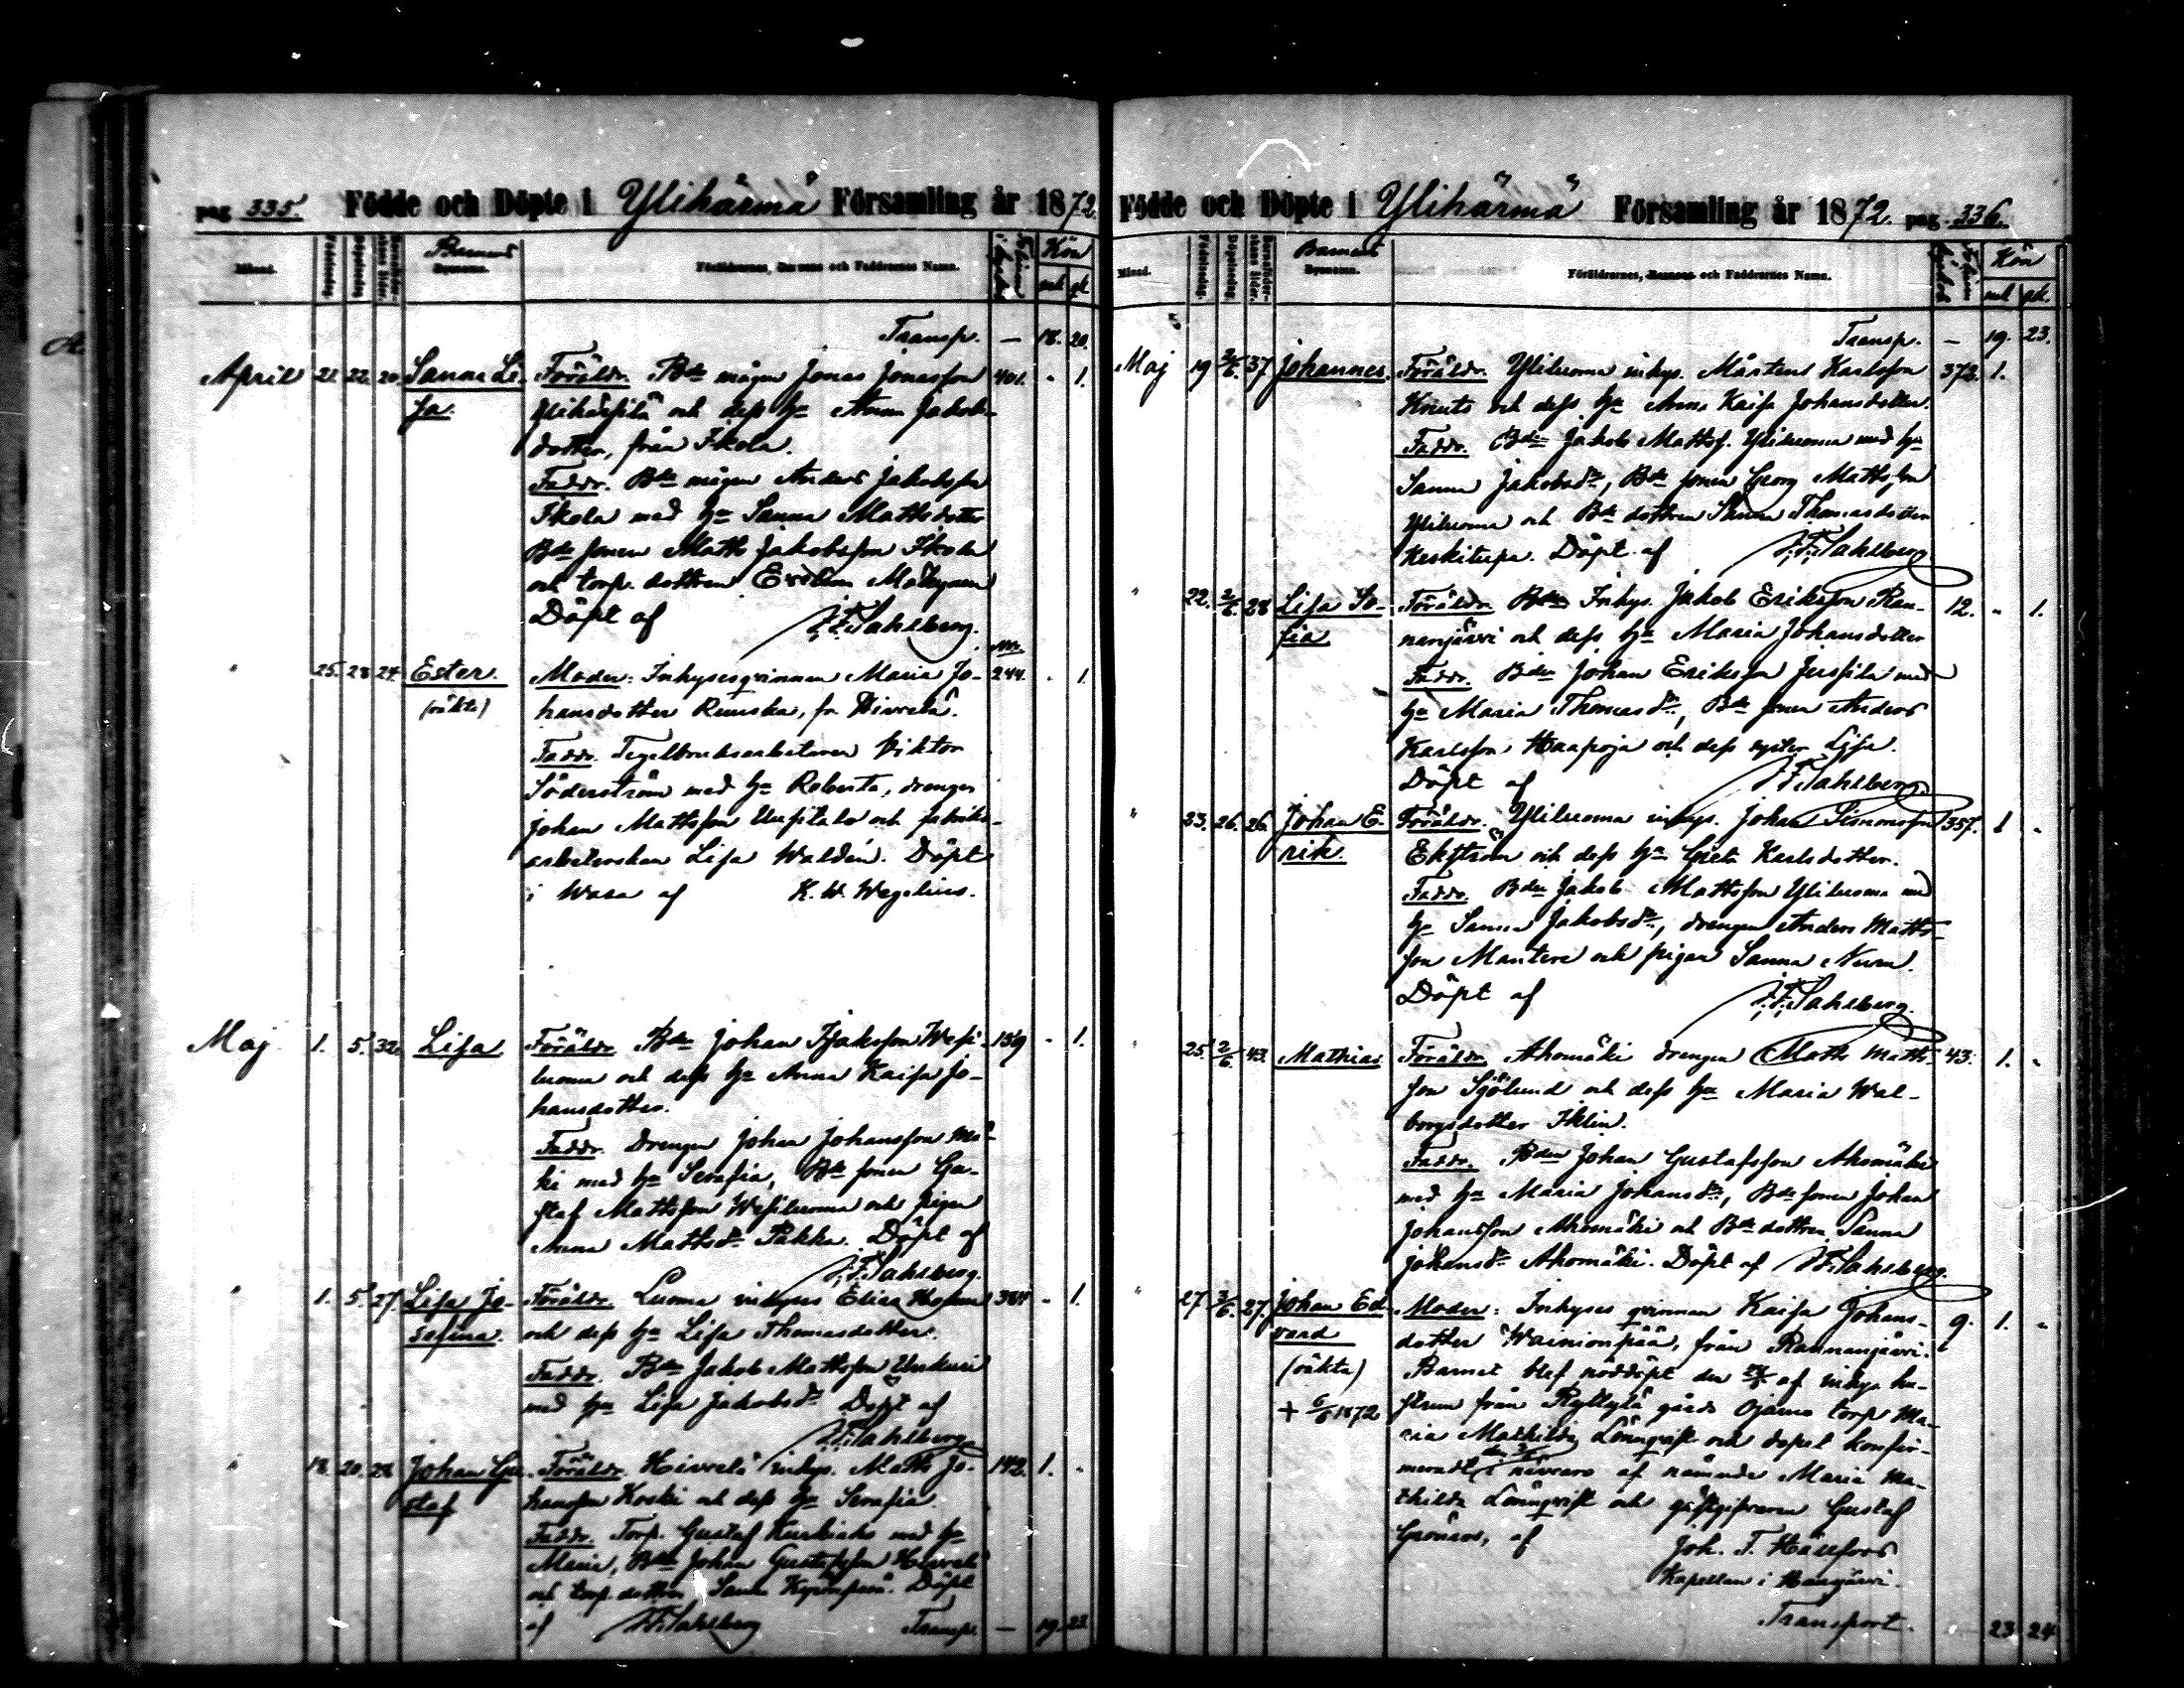 pag 335. Födde och Döpte i Ylihärmä Församling år 1872
Månad. Födelsedag. Döpelsedag. Barnets Föräldrarnes, och Faddrarnes Namn. Kön
mk qk
Transp. — 18. 20.
April 21. 22. 20. Sanna Li- Föräldr. Bde mågen Jonas Jonasson 401. - 1.
sa. och dess hu Anna Jakobs-
dotter, från Ikola.
Faddr. Bde mågen Anders Jakobsson
Ikola med hu Sanna Mattsdotter
Bde sonen Matts Jakobsson Ikola
och torp. dottren
Döpt af Sahlberg.
" 25. 28. 24. Ester. Moder: Inhysesqvinnan Maria Jo- 244. - 1.
(oäkta) hansdotter Ruuska, fr. Hivvelä.
Faddr. Tegelbruksarbetaren Viktor
Söderström med hu Roberta, drengen
Johan Mattsson och fabriks-
arbeterskan Lisa Waldén. Döpt
i Wasa af K. W. Wegelius.
Maj 1. 5. 32. Lisa Föräldr. Bde Johan Isaksson Wesi- 159 - 1.
luoma och dess hu Anna Kaisa Jo-
hansdotter.
Faddr. Drengen Johan Johansson Mä-
ki med hu Serafia, Bde sonen Gu-
staf Mattsson Wesiluoma och pigan
Anna Mattsdr Pukka. Döpt af
Sahlberg.
" 1. 5. 27. Lisa Jo- Föräldr. Luoma inhyses Elias 384 - 1.
sefina. och dess hu Lisa Thomasdotter.
Faddr. Bde Jakob Mattsson Unkuri
med hu Lisa Jakobsdr Döpt af
Sahlberg
" 18. 20. 28. Johan Gu- Föräldr. Hivvelä inhys. Matts Jo- 142. 1. -
staf hansson Koski och dess hu Serafia
Faddr. Torp. Gustaf med hu
Maria, Bde Johan Gustafsson Hivvelä
och torp. dottren Sanna Döpt
af Sahlberg Transp. — 19. 23.
Födde och Döpte i Ylihärmä Församling år 1872. pag 336.
Månad. Födelsedag. Döpelsedag. Barnets Föräldrarnes, Barnens och Faddrarnes Namn. Kön
mk qk.
Transp. — 19. 23.
Maj 19 2/6. 37 Johannes. Föräldr. Yliluoma inhys. Mårten Karlsson 373. 1.
Knuts och dess hu Anna Kaisa Johansdotter.
Faddr. Bden Jakob Mattss. Yliluoma med hu
Sanna Jakobsdr, Bde sonen Georg Mattsson
Yliluoma och Bde dottren Sanna Thomasdotter
Keskitupa. Döpt af Sahlberg
" 22. 2/6. 28 Lisa So- Föräldr. Bden Inhys. Jakob Eriksson Ran- 12. - 1.
fia nanjärvi och dess hu Maria Johansdotter
Faddr. Bden Johan Eriksson Jussila med
hu Maria Thomasdr, Bde sonen Anders
Karlsson Haapoja och dess syster Lisa.
Döpt af Sahlberg
" 23. 26. 26. Johan E- Föräldr. Yliluoma inhys. Johan Simonsson 357. 1 -
rik. Ekström och dess hu Greta Karlsdotter.
Faddr. Bden Jakob Mattsson Yliluoma med
hu Sanna Jakobsdr, drengen Anders Matts-
son Mantere och pigan Sanna
Döpt af Sahlberg
" 25. 2/6. 43. Mathias Föräldr. Ahomäki drengen Matts Matts- 43. 1. -
son Sjölund och dess hu Maria Wal-
borgsdotter Iklin.
Faddr. Bden Johan Gustafsson Ahomäki
med hu Maria Johansdr, Bde sonen Johan
Johansson Ahomäki och Bde dottren Sanna
Johansdr Ahomäki. Döpt af Sahlberg.
" 27. 3/6. 27 Johan Ed- Moder: Inhyses qvinnan Kaisa Johans- 9. 1. -
vard dotter Wainionpää, från Rannanjärvi.
(oäkta) Barnet blef nöddöpt den af inhys. hu-
+ 6/6 1872 strun från Ryttylä gårds Ojamo torp Ma-
ria Mathilda Lönnqvist och dopet konfir-
meradt i närvaro af nämnda Maria Ma-
thilda Lönnqvist och gästgifvaren Gustaf
Grönroos, af Joh. T. Hällfors
Kapellan i
Transport. 23 24